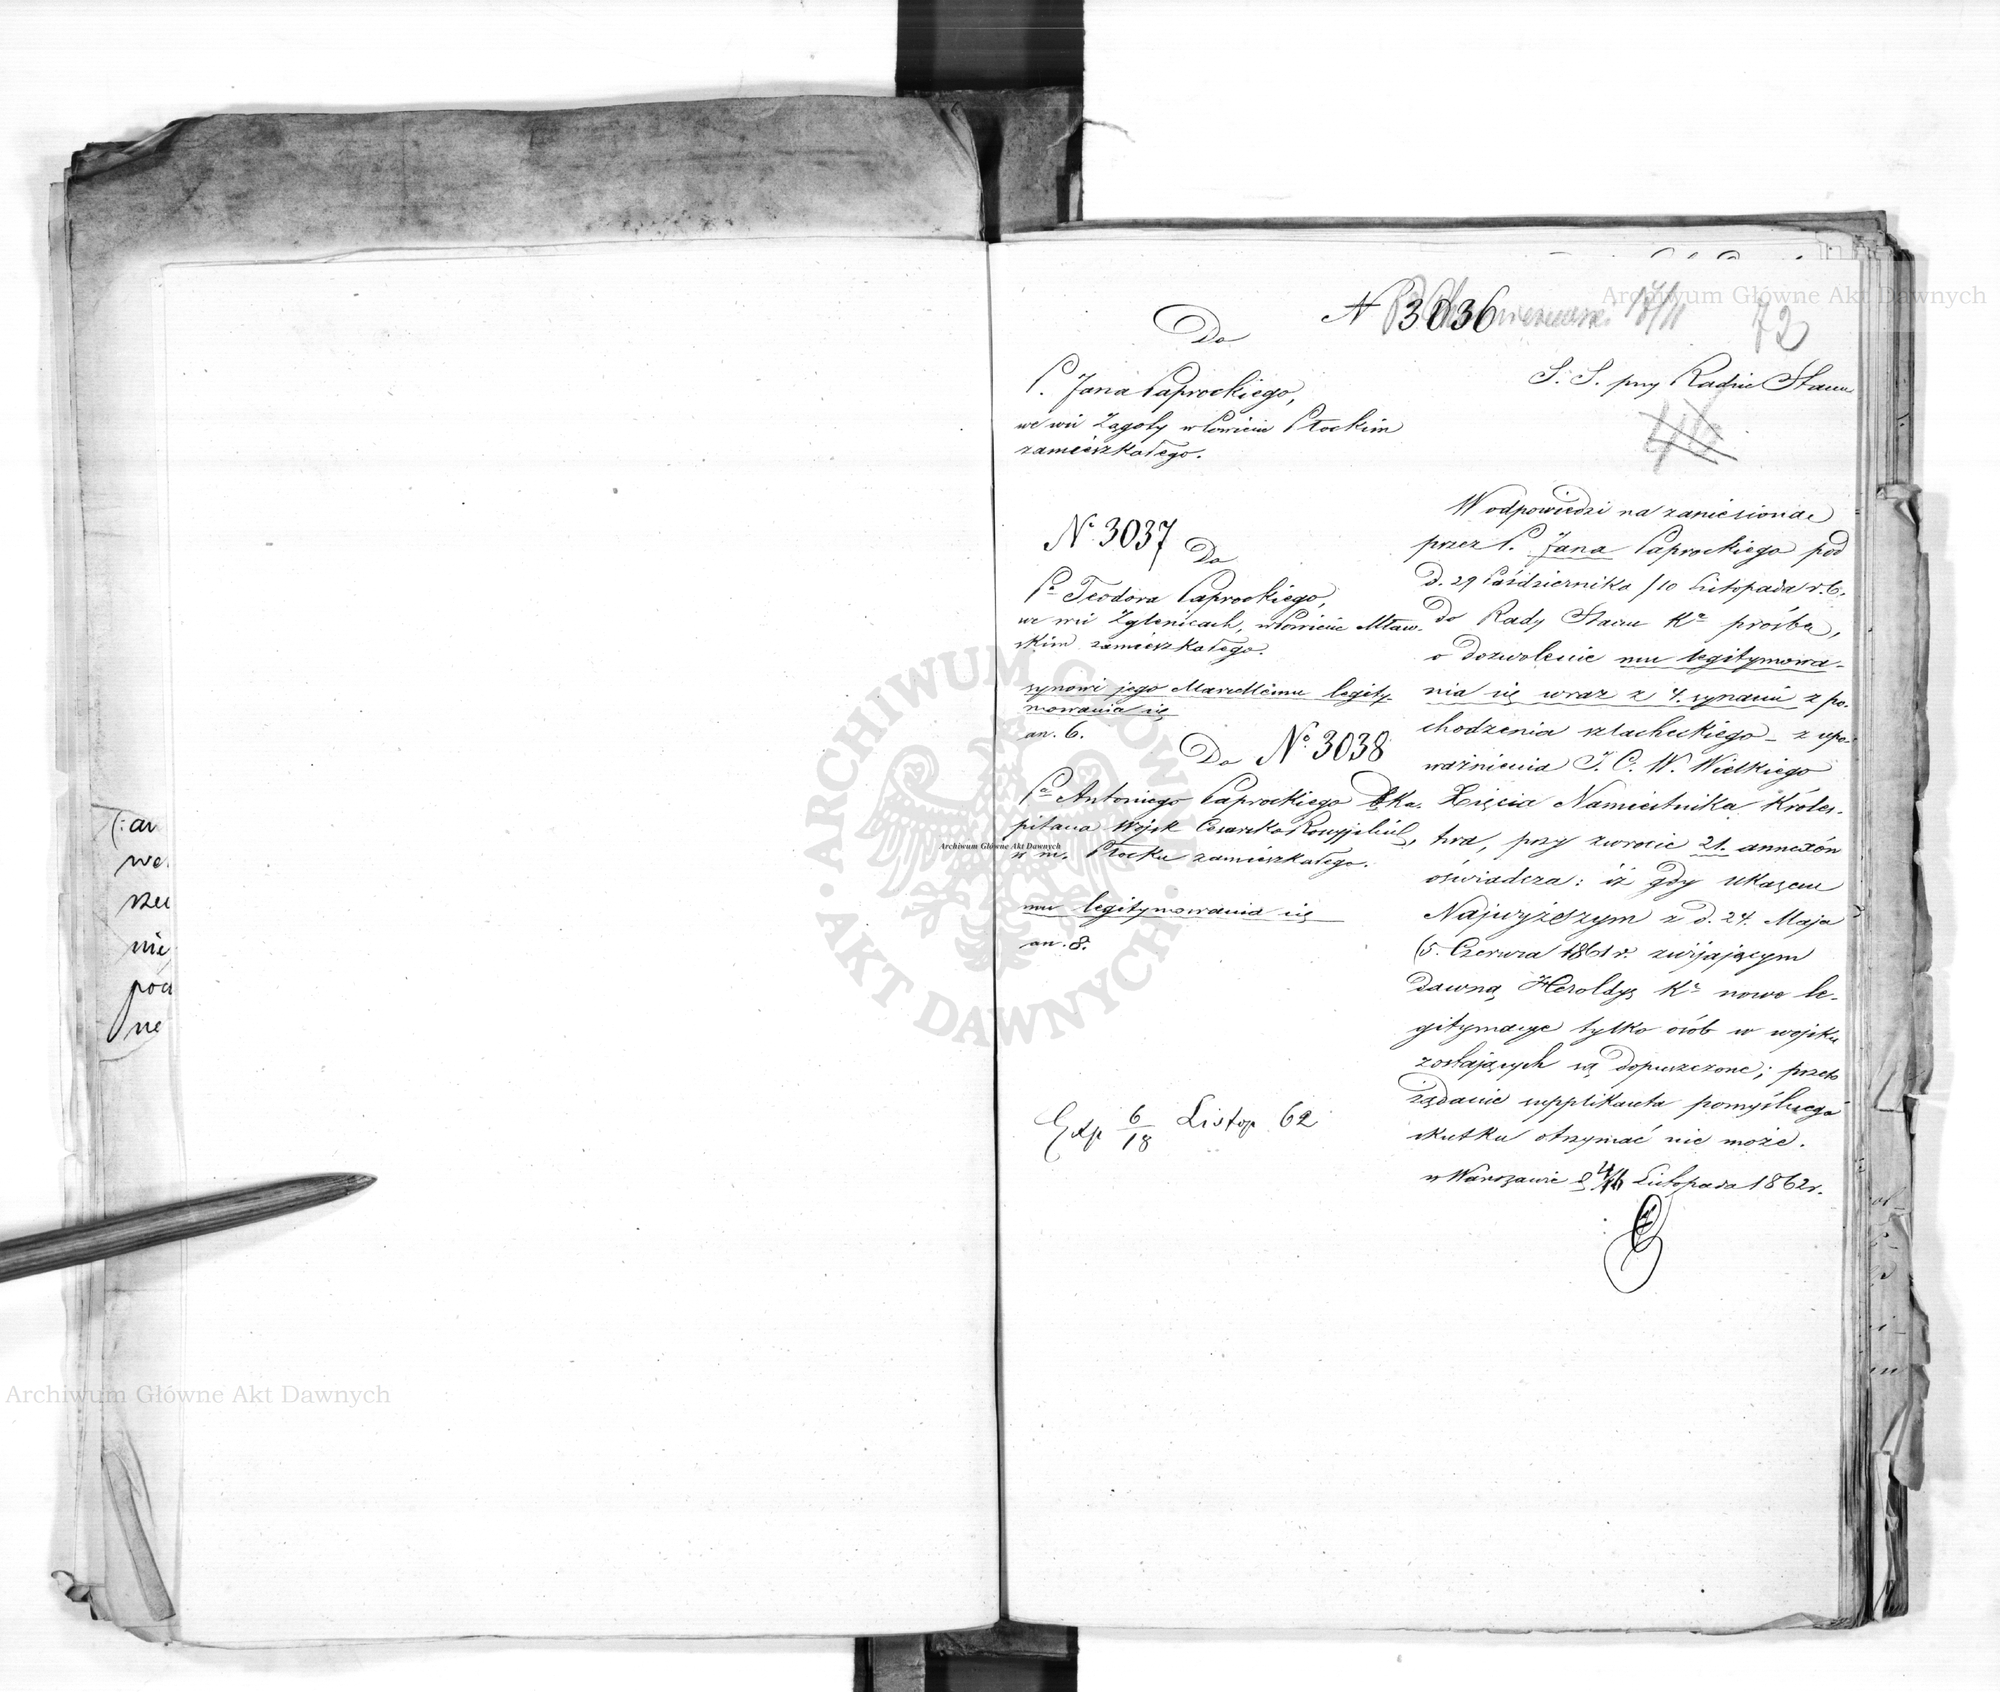 (: ar
we
rzec
nie
pod
ne
N 3036
17/11
72
Do
P. Jana Paprockiego,
we wsi Zągoty w Powiecie Płockim
zamieszkałego.
S. S. przy Radzie Stanu
N° 3037
Do
Pa Teodora Paprockiego,
we wsi Zglenicach, w Powiecie Mław-
skim zamieszkałego.
synowi jego Marcellemu legity-
mowania się
an. 6.
Do N° 3038
Pa Antoniego Paprockiego Ka-
pitana Wojsk Cesarsko Rossyjskich,
w m. Płocku zamieszkałego.
mu legitymowania się
an. 8.
Exp 6/18 Listop 62
W odpowiedzi na zaniesioną
przez P. Jana Paprockiego pod
d. 29 Października /10 Listopada r. b.
do Rady Stanu Kr prośbę,
o dozwolenie mu legitymowa-
nia się wraz z 4. synami z po-
chodzenia szlacheckiego – z upo-
ważnienia J. C. W. Wielkiego
Xięcia Namiestnika Króles-
twa, przy zwrocie 21. annexów
oświadcza: iż gdy ukazem
Najwyższym z d. 24 Maja
(5. Czerwca 1861 r. zwijającym
dawną Heroldyę Kr nowe le-
gitymacye tylko osób w wojsku
zostających są dopuszczone; przeto
żądanie supplikanta pomyślnego
skutku otrzymać nie może.
w Warszawie d 4/16 Listopada 1862 r.
Archiwum Główne Akt Dawnych
Archiwum Główne Akt Dawnych
Archiwum Główne Akt Dawnych
ARCHIWUM GŁÓWNE AKT DAWNYCH